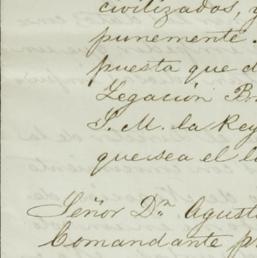 civilizados, y
punemente.
puesta que d
Legación Bo
S. M. la Rey
que sea el l
Señor Dn Agust
Comandante p